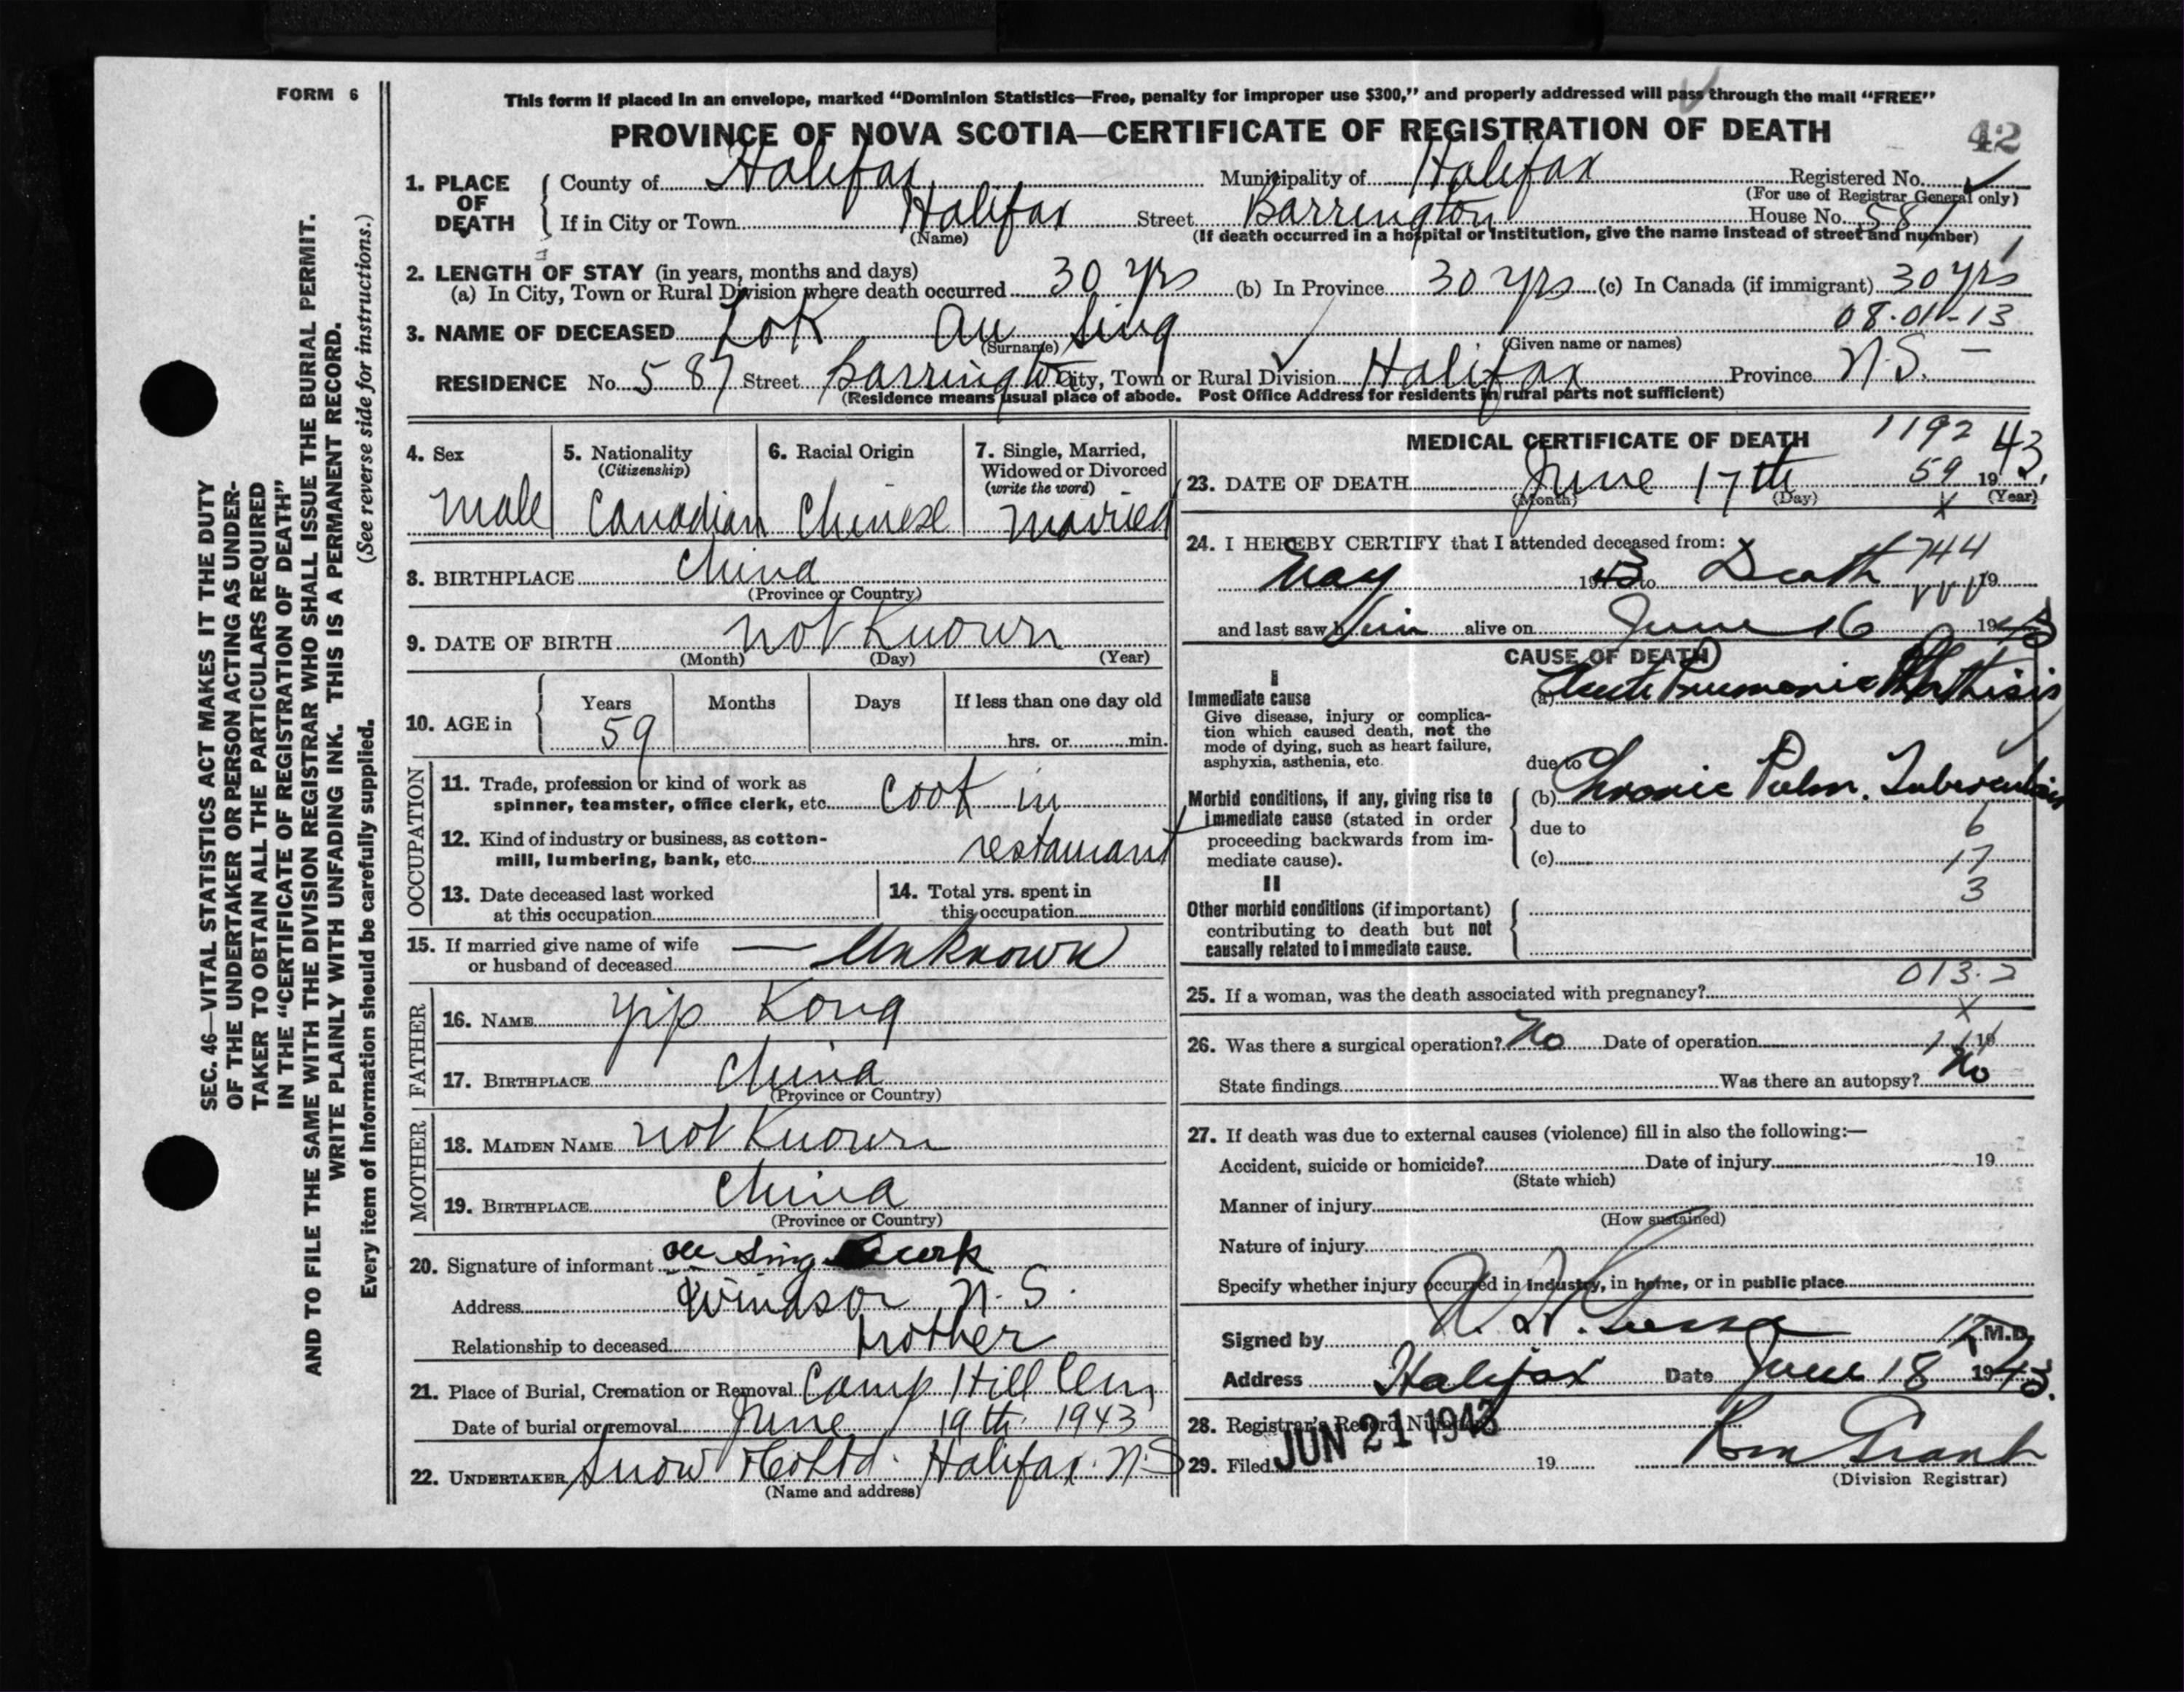 FORM 6
This form if placed in an envelope, marked “Dominion Statistics—Free, penalty for improper use $300,” and properly addressed will pass through the mail “FREE”
PROVINCE OF NOVA SCOTIA—CERTIFICATE OF REGISTRATION OF DEATH
42
SEC. 46—VITAL STATISTICS ACT MAKES IT THE DUTY
OF THE UNDERTAKER OR PERSON ACTING AS UNDER-
TAKER TO OBTAIN ALL THE PARTICULARS REQUIRED
IN THE “CERTIFICATE OF REGISTRATION OF DEATH”
AND TO FILE THE SAME WITH THE DIVISION REGISTRAR WHO SHALL ISSUE THE BURIAL PERMIT.
WRITE PLAINLY WITH UNFADING INK. THIS IS A PERMANENT RECORD.
(See reverse side for instructions.)
Every item of information should be carefully supplied.
1. PLACE OF DEATH
County of Halifax Municipality of Halifax Registered No.
(For use of Registrar General only)
If in City or Town Halifax Street Barrington House No. 587
(Name) (If death occurred in a hospital or institution, give the name instead of street and number)
2. LENGTH OF STAY (in years, months and days)
(a) In City, Town or Rural Division where death occurred 30 yrs (b) In Province 30 yrs (c) In Canada (if immigrant) 30 yrs
08-01-13
3. NAME OF DECEASED Lok au Sing
(Surname) (Given name or names)
RESIDENCE No. 587 Street Barrington City, Town or Rural Division Halifax Province N.S. —
(Residence means usual place of abode. Post Office Address for residents in rural parts not sufficient)
4. Sex 5. Nationality (Citizenship) 6. Racial Origin 7. Single, Married, Widowed or Divorced (write the word)
Male Canadian Chinese Married
8. BIRTHPLACE China
(Province or Country)
9. DATE OF BIRTH not Known
(Month) (Day) (Year)
10. AGE in Years Months Days If less than one day old
59 hrs. or min.
OCCUPATION
11. Trade, profession or kind of work as
spinner, teamster, office clerk, etc. Cook in
12. Kind of industry or business, as cotton-
mill, lumbering, bank, etc. restaurant
13. Date deceased last worked
at this occupation
14. Total yrs. spent in
this occupation
15. If married give name of wife
or husband of deceased — Unknown
FATHER
16. NAME Yip Kong
17. BIRTHPLACE China
(Province or Country)
MOTHER
18. MAIDEN NAME not Known
19. BIRTHPLACE China
(Province or Country)
20. Signature of informant au Sing
Address Windsor N.S.
Relationship to deceased brother
21. Place of Burial, Cremation or Removal Camp Hill Cem
Date of burial or removal June 19th 1943
22. UNDERTAKER Snow & Co Ltd. Halifax. N.S
(Name and address)
MEDICAL CERTIFICATE OF DEATH 1192
23. DATE OF DEATH June 17th 59 1943.
(Month) (Day) (Year)
x
24. I HEREBY CERTIFY that I attended deceased from:
744
May 1943 to Death 19
and last saw him alive on June 16 1943
CAUSE OF DEATH
I
Immediate cause
Give disease, injury or complica-
tion which caused death, not the
mode of dying, such as heart failure,
asphyxia, asthenia, etc.
(a) Acute Pneumonic Phthisis
due to
Morbid conditions, if any, giving rise to
immediate cause (stated in order
proceeding backwards from im-
mediate cause).
(b) Chronic Pulm. Tuberculosis
due to
6
(c) 17
II
3
Other morbid conditions (if important)
contributing to death but not
causally related to immediate cause.
013.2
25. If a woman, was the death associated with pregnancy?
x
26. Was there a surgical operation? No Date of operation 19
State findings Was there an autopsy? No
27. If death was due to external causes (violence) fill in also the following:—
Accident, suicide or homicide? Date of injury 19
(State which)
Manner of injury
(How sustained)
Nature of injury
Specify whether injury occurred in industry, in home, or in public place
Signed by M.D.
Address Halifax Date June 18 1943.
28. Registrar's Record Number
JUN 21 1943
29. Filed 19 Grant
(Division Registrar)